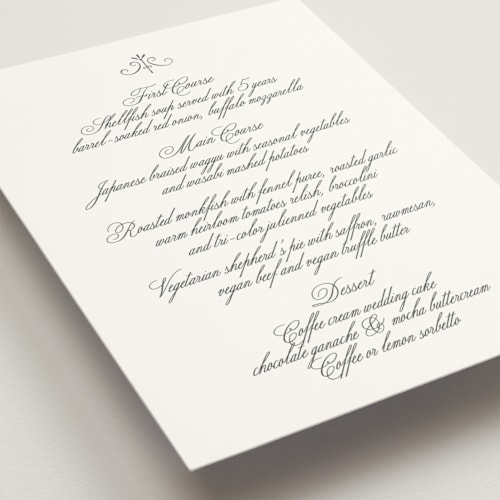 First Course
Shellfish soup served with 5 years
barrel-soaked red onion, buffalo mozzarella
Main Course
Japanese braised wagyu with seasonal vegetables
and wasabi mashed potatoes
Roasted monkfish with fennel puree, roasted garlic
warm heirloom tomatoes relish, broccolini
and tri-color julienned vegetables
Vegetarian shepherd's pie with saffron, rawmesan,
vegan beef and vegan truffle butter
Dessert
Coffee cream wedding cake
chocolate ganache & mocha buttercream
Coffee or lemon sorbetto